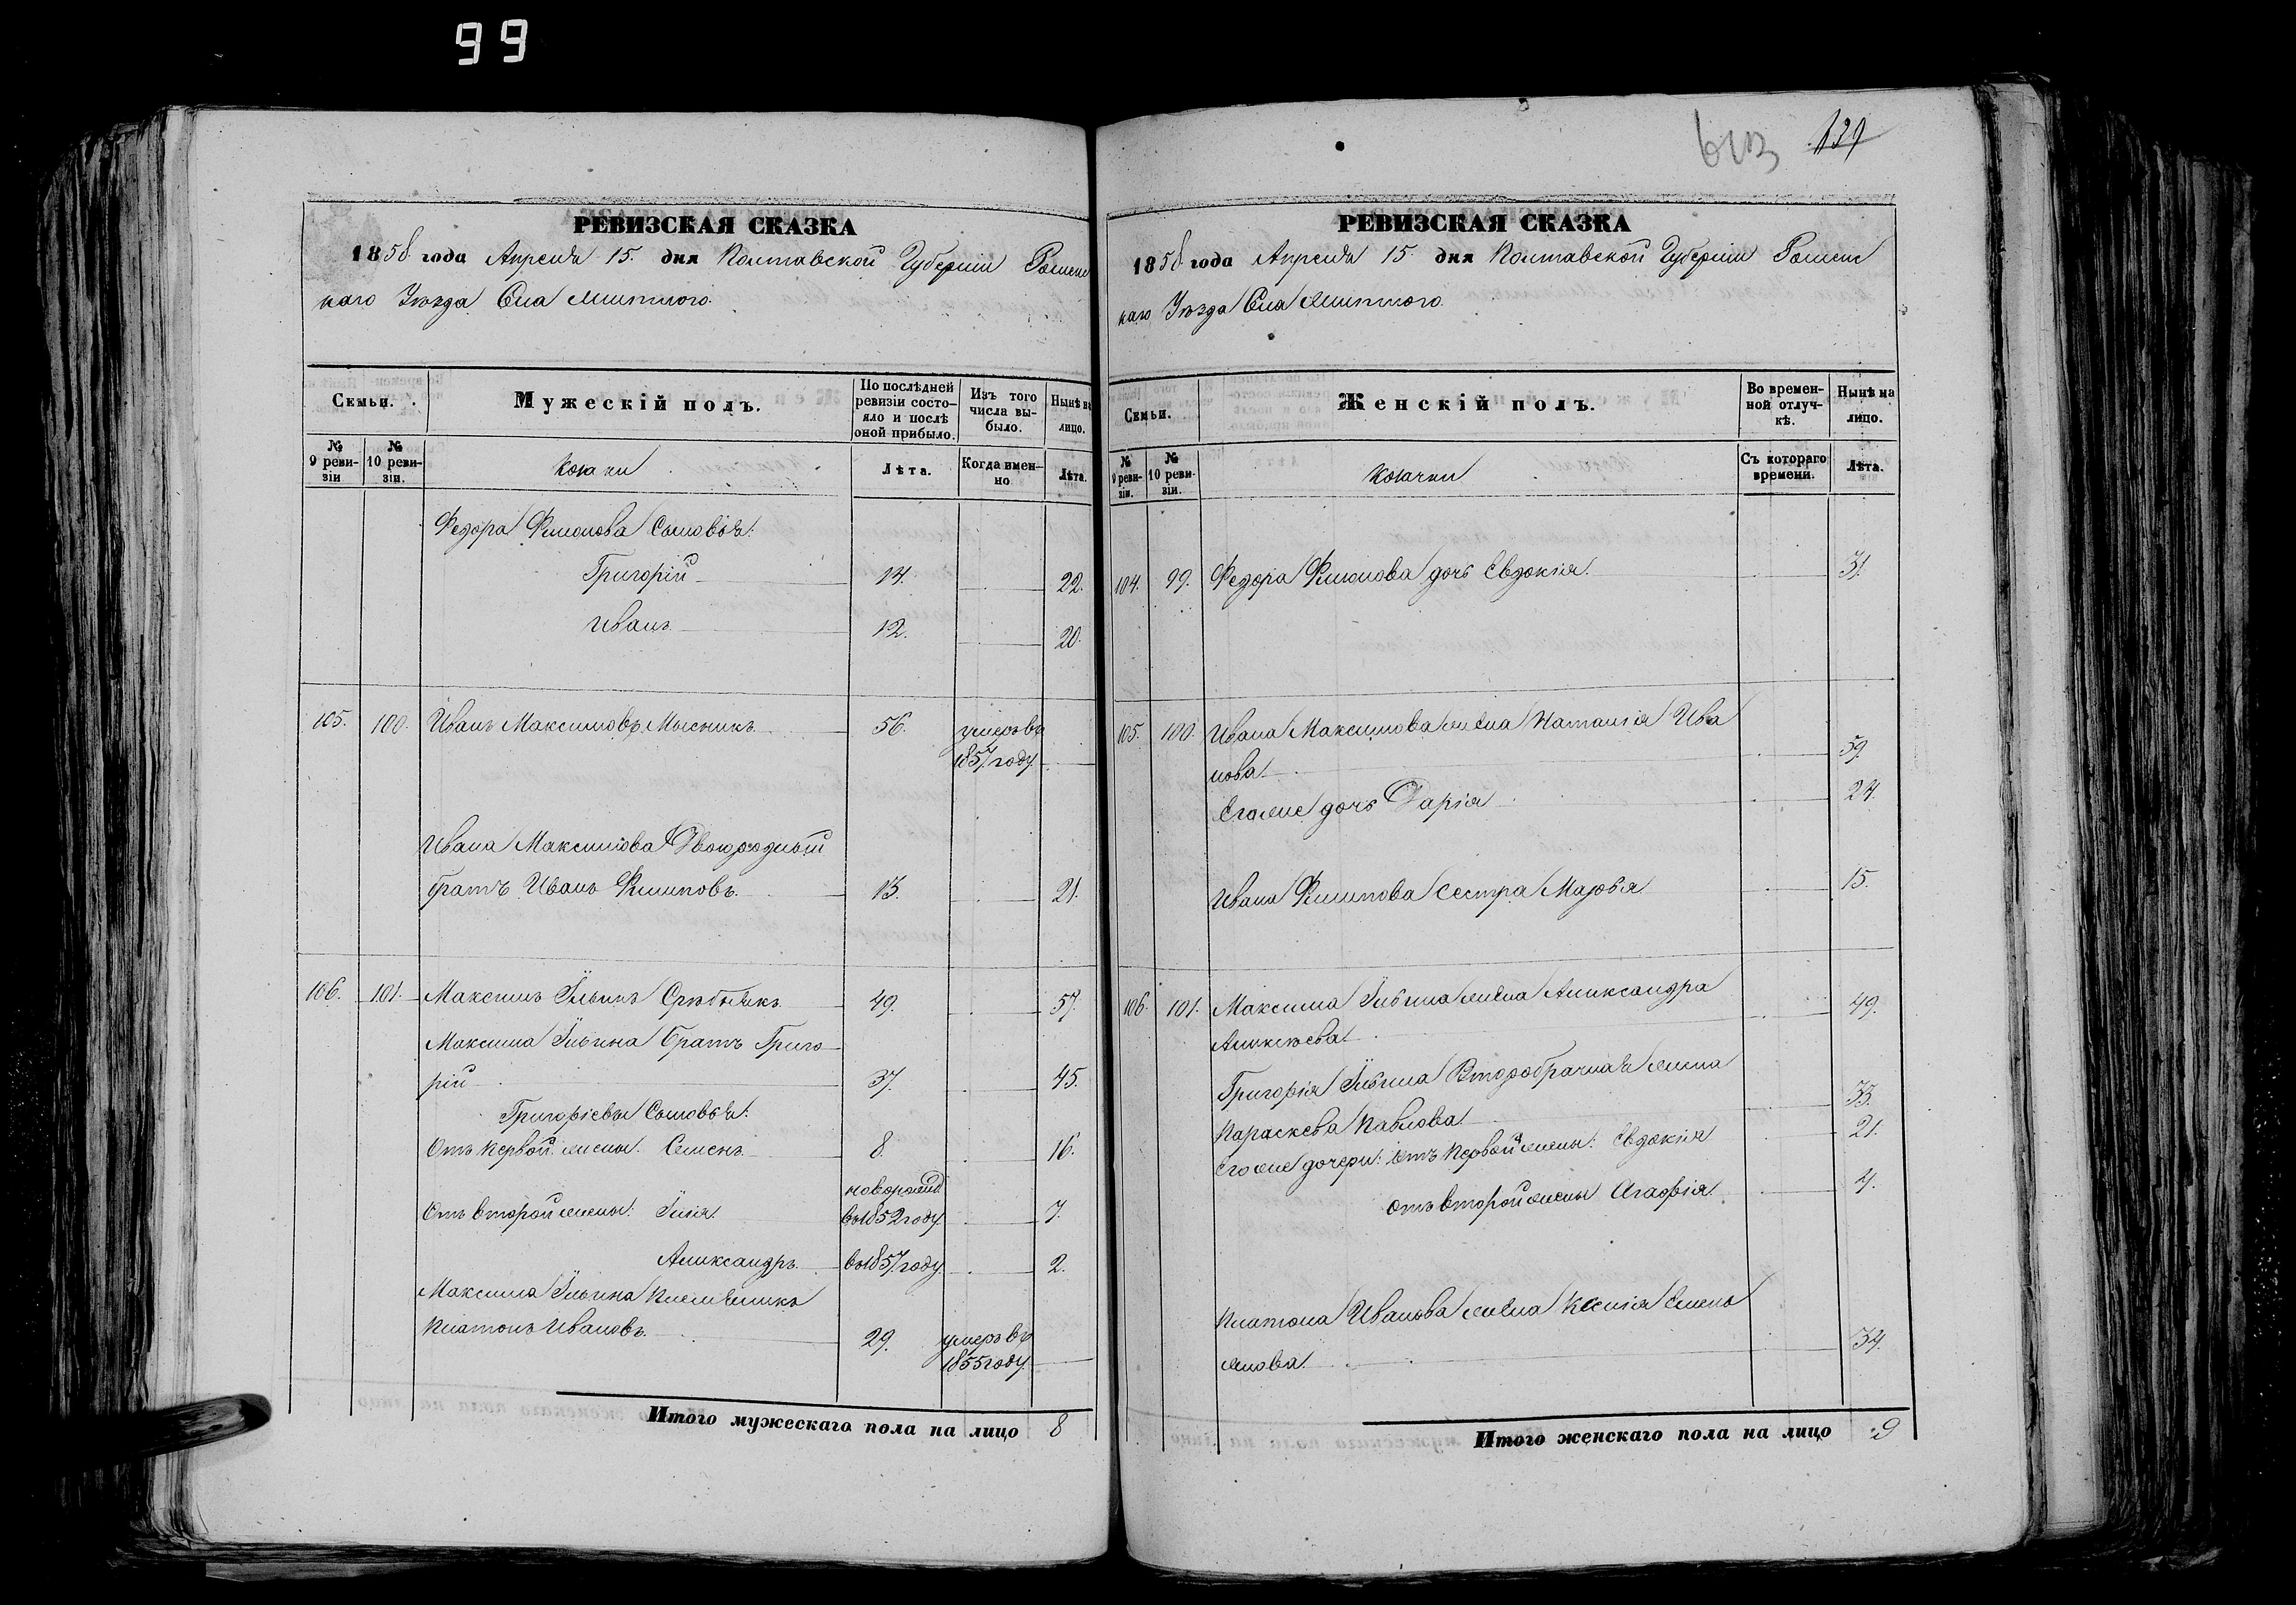 99
139
РЕВИЗСКАЯ СКАЗКА
1858 года Апреля 15. дня Полтавской Губерніи Роменс
каго Уѣзда Села
Семьи.
Мужескій полъ.
По послѣдней ревизіи состояло и послѣ оной прибыло.
Изъ того числа выбыло.
Нынѣ на лицо.
№ 9 ревизіи
№ 10 ревизіи.
Козаки
Лѣта.
Когда именно
Лѣта.
Федора Филонова Сыновья:
Григорій 14. 22.
Иванъ 12. 20.
105. 100. Иванъ Максимовъ Мысникъ 56. умеръ въ
1857 году.
Ивана Максимова Двоюродный
братъ Иванъ Филиповъ 13. 21.
106. 101. Максимъ Ильинъ 49. 57.
Максима Ильина Братъ Григо
рій 37. 45.
Григоріевы Сыновья:
Отъ первой жены. Семенъ 8. 16.
новорожд.
Отъ второй жены: Илія. въ 1852 году. 7.
Александръ. въ 1857 году. 2.
Максима Ильина племянникъ
Платонъ Ивановъ. 29. умеръ въ
1855 году.
Итого мужескаго пола на лицо 8
РЕВИЗСКАЯ СКАЗКА
1858 года Апреля 15 дня Полтавской Губерніи Роменс
каго Уѣзда Села
Семьи.
Женскій полъ.
Во временной отлучкѣ.
Нынѣ на лицо.
№ 9 ревизіи.
№ 10 ревизіи.
Козачки
Съ котораго времени.
Лѣта.
104. 99. Федора Филонова дочь Евдокія. 31.
105. 100. Ивана Максимова жена Наталія Ива
нова 59.
Его же дочь Дарія 24.
Ивана Филипова сестра Марфа 15.
106. 101. Максима Ильина жена Александра
Алексѣева 49.
Григорія Ильина Второбрачная жена
Параскева Павлова 33.
Его же дочери: отъ первой жены: Евдокія 21.
отъ второй жены Агафія 4.
Платона Иванова жена Ксенія Семе
нова 34.
Итого женскаго пола на лицо 9